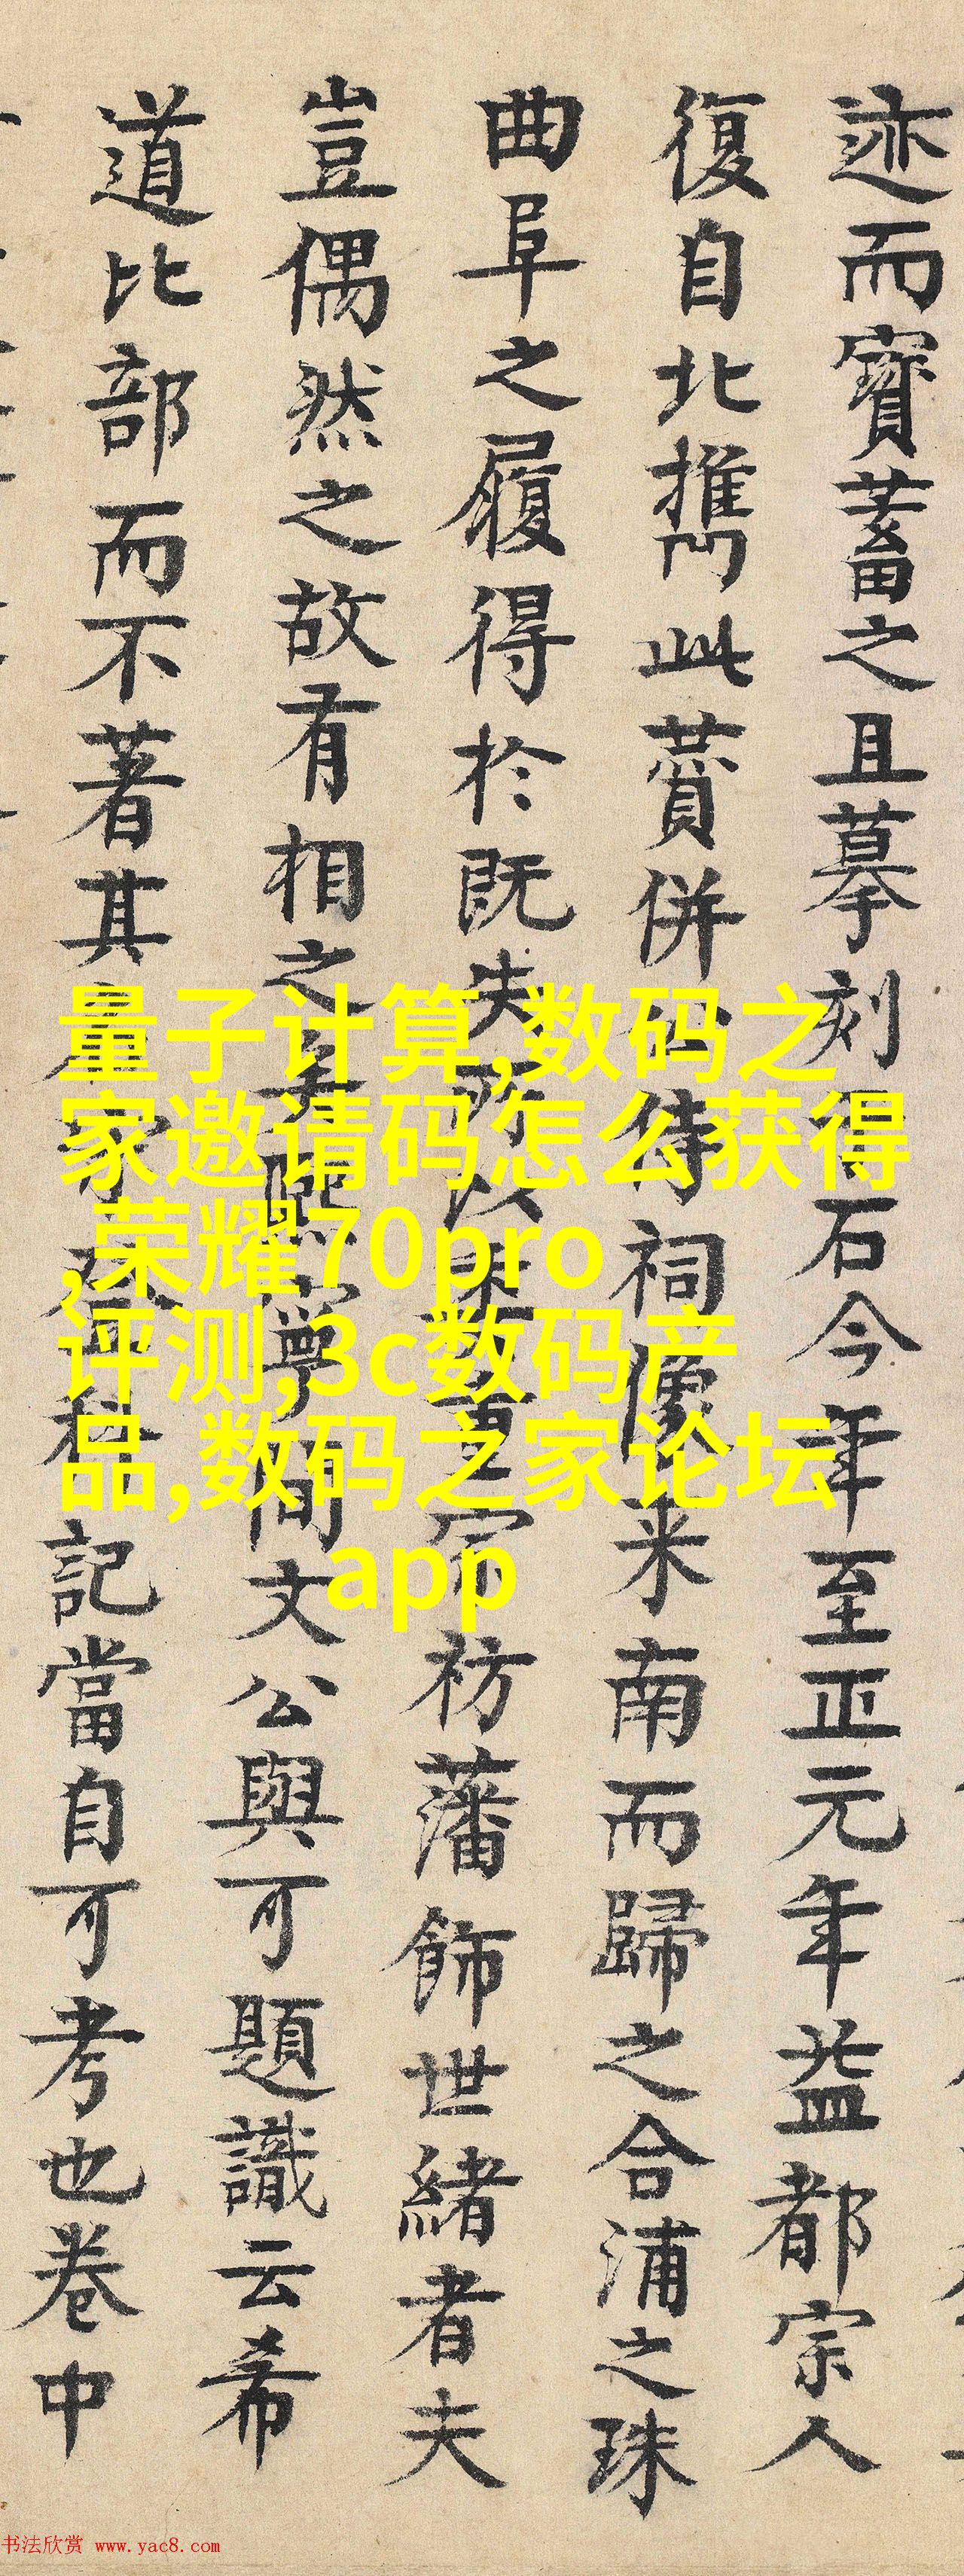 迹而寳蓄之且摹刻石今年至正元年益都宗人
復自北擕此賛併待祠像米南而歸之合浦之珠
曲阜之履得於既失所以宗祊藩飾世緒者夫
豈偶然之故有相之熙寧間文公與可題識云希
道比部而不著其家登科記當自可考也卷中
量子计算,数码之
家邀请码怎么获得
,荣耀70pro
评测,3c数码产
品,数码之家论坛
app
书法欣赏 www.yac8.com